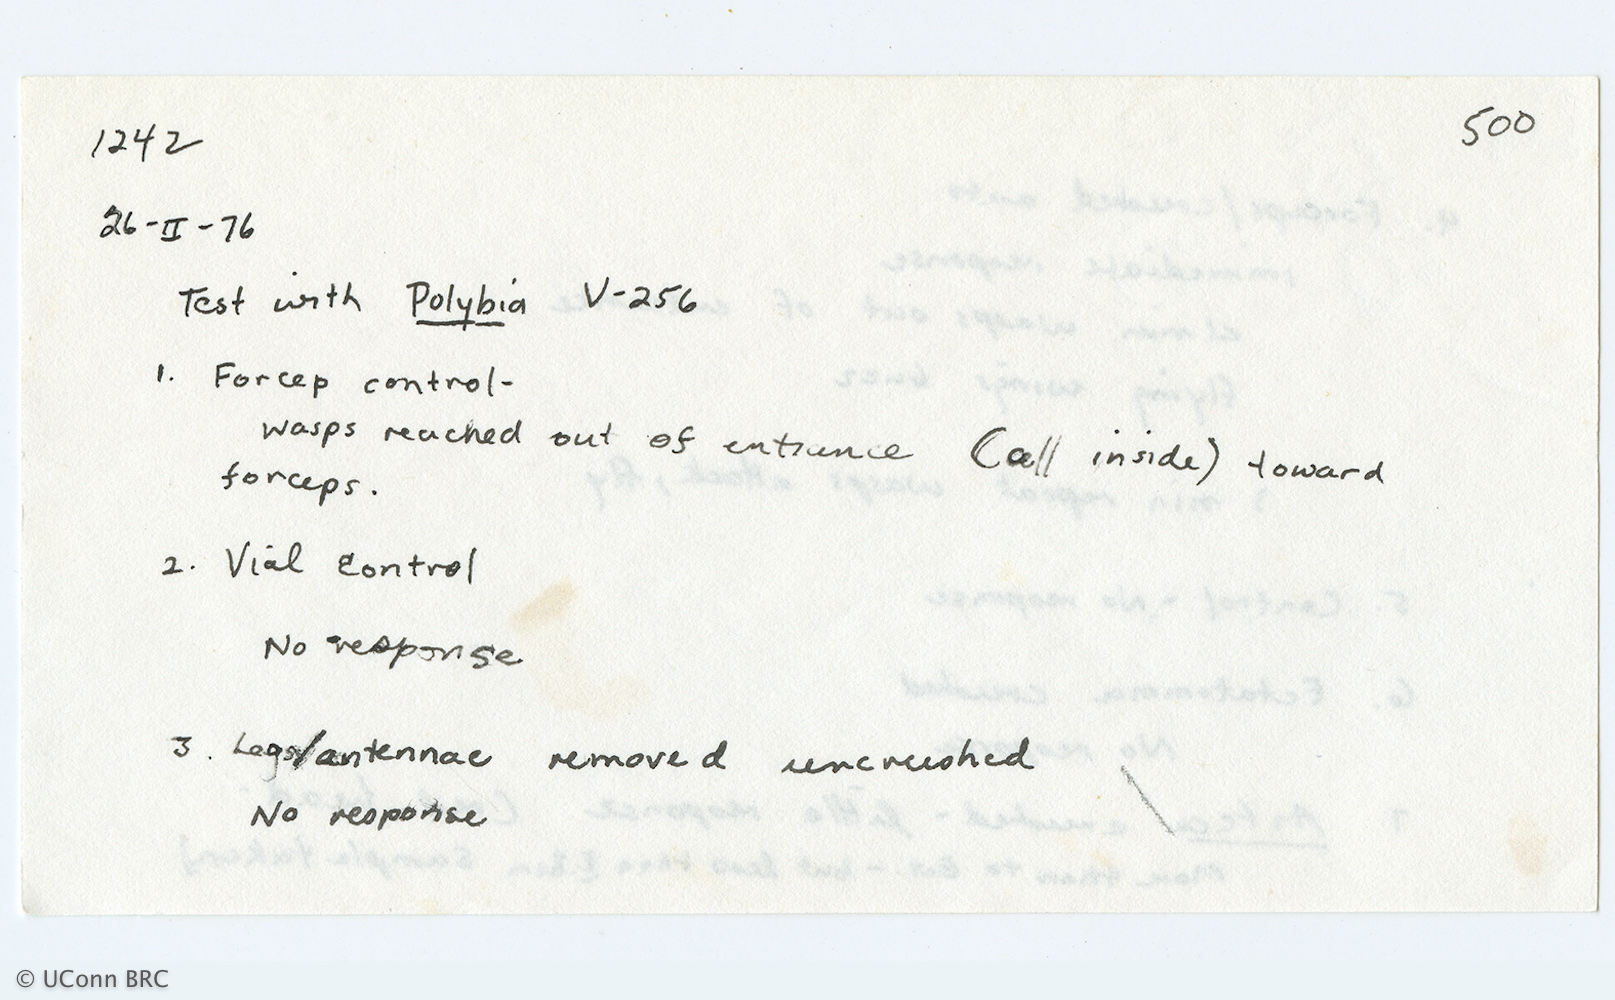 1242
500
26-II-76
Test with Polybia V-256
1. Forcep control-
wasps reached out of entrance (all inside) toward
forceps.
2. Vial control
No response
3. Legs/antennae removed uncrushed
No response
© UConn BRC